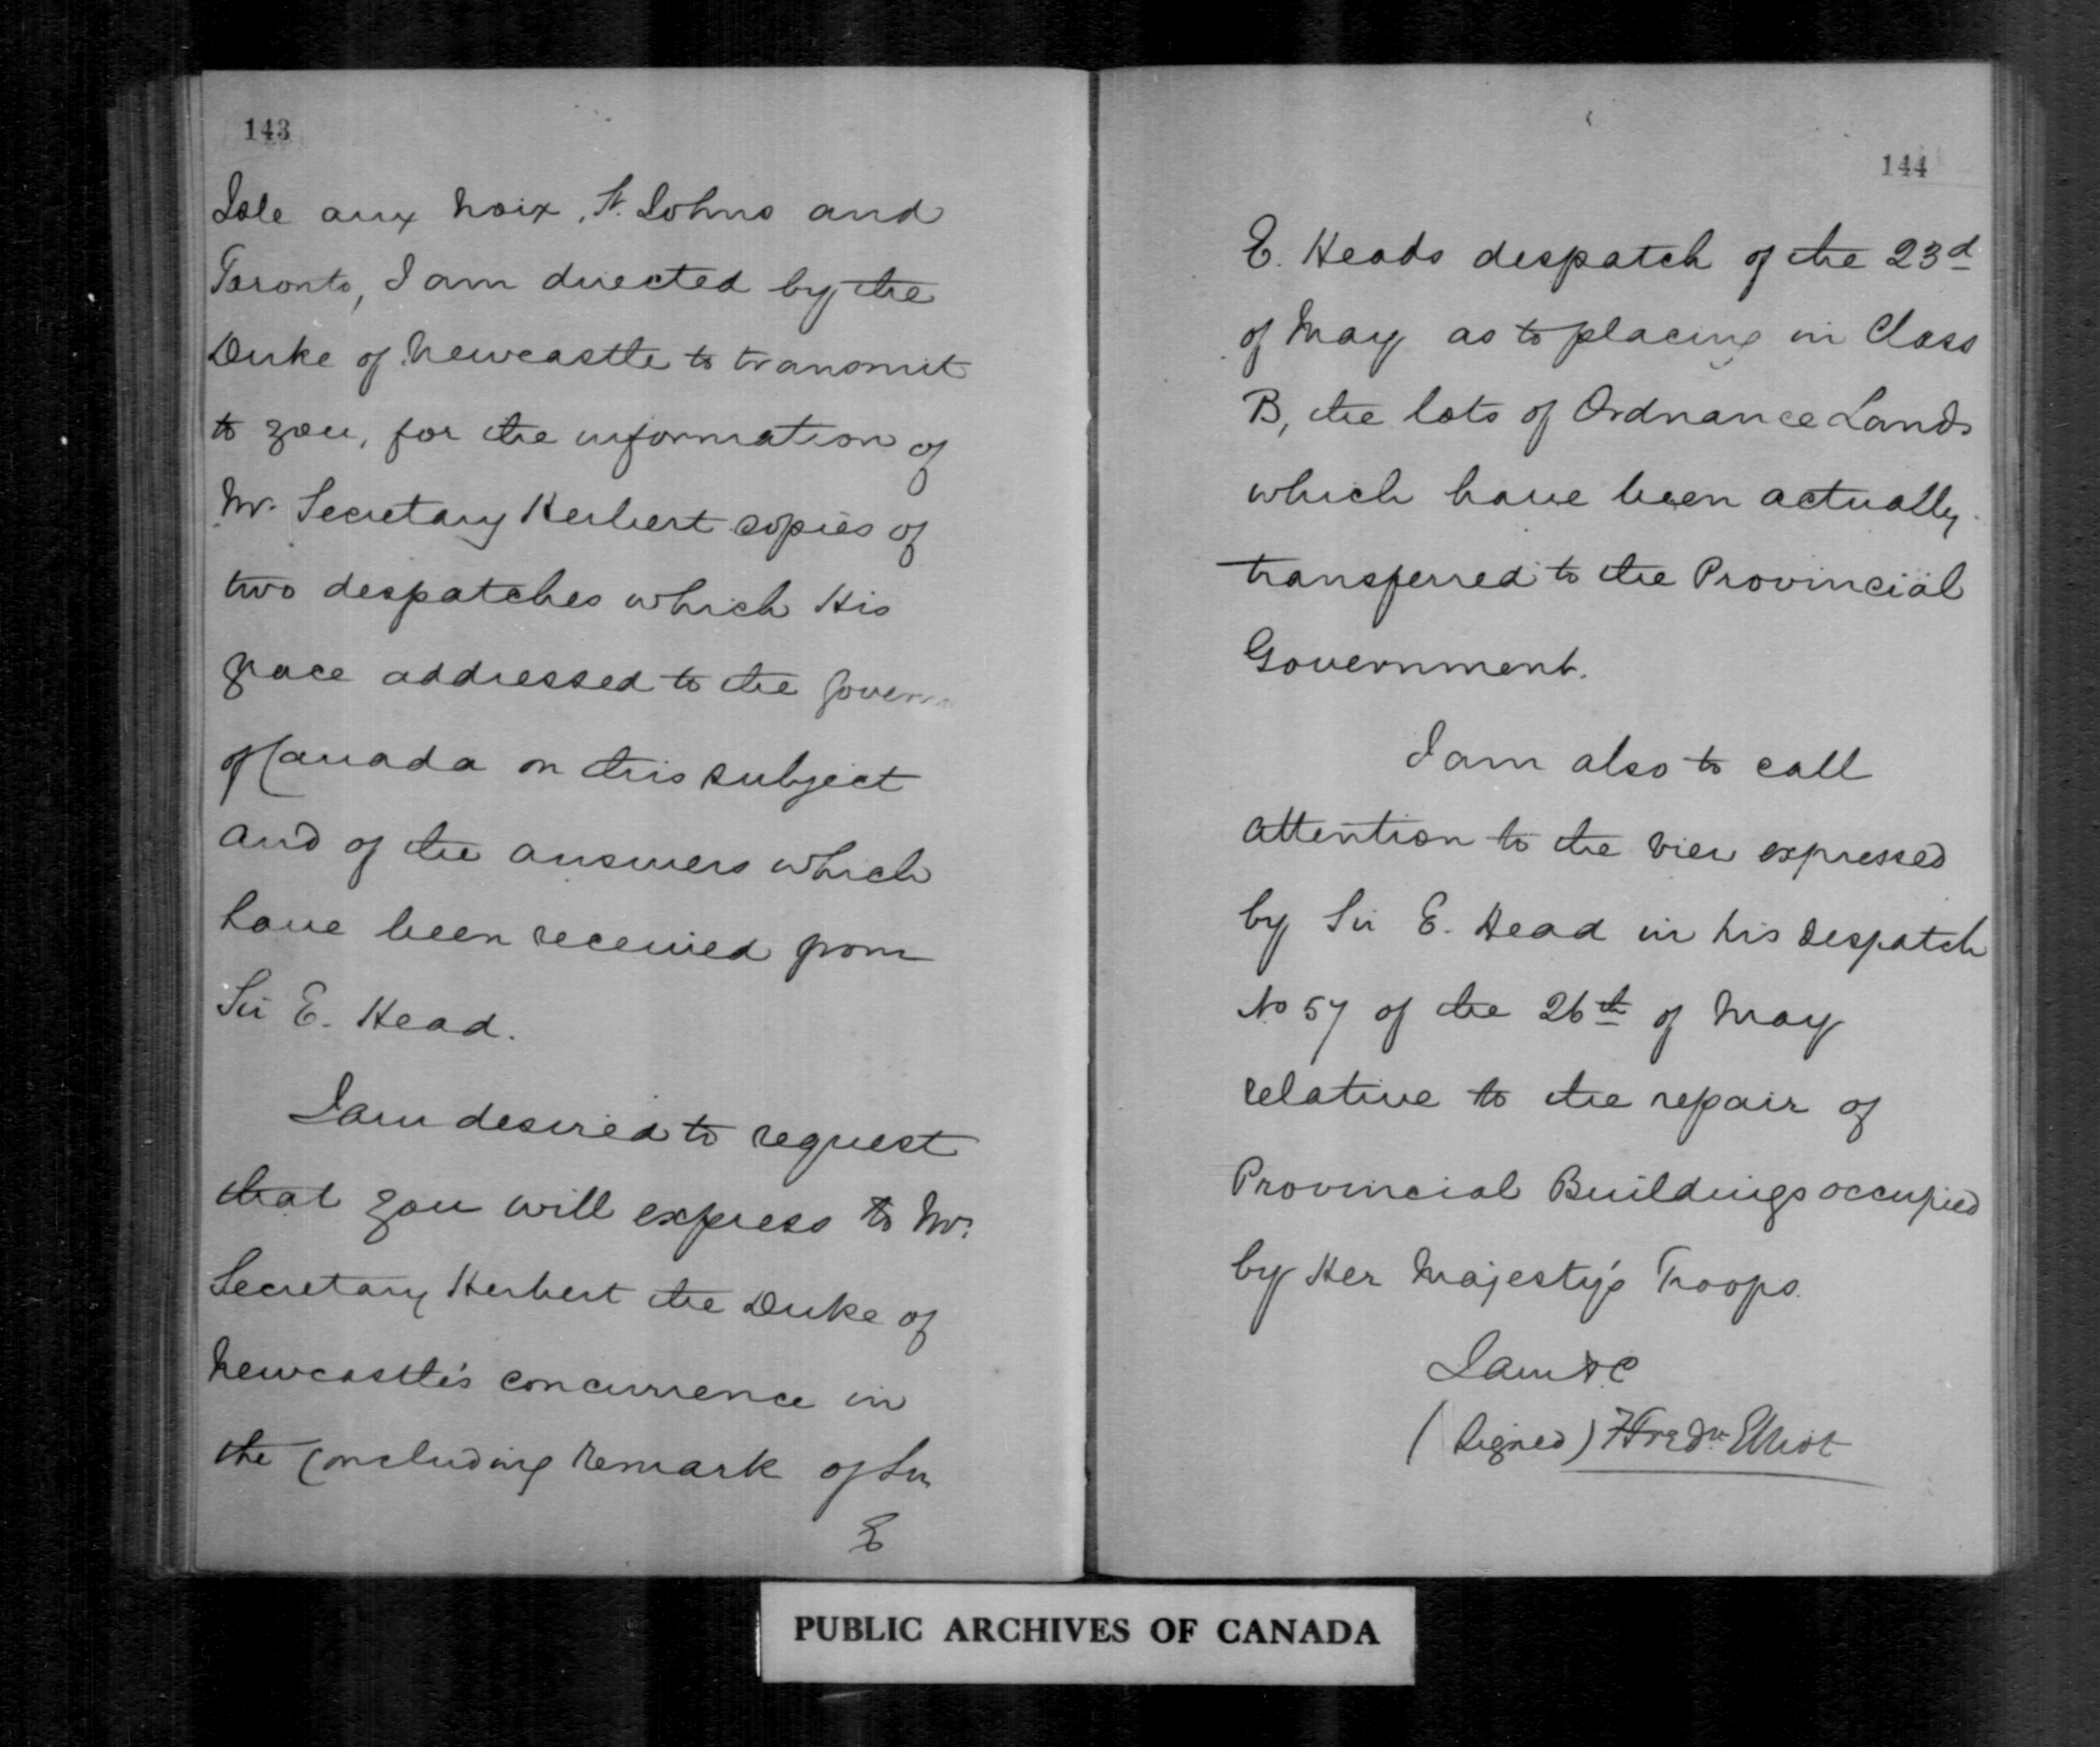 143
Isle aux Noix, St. Johns and
Toronto, I am directed by the
Duke of Newcastle to transmit
to you, for the information of
Mr. Secretary Herbert copies of
two despatches which His
Grace addressed to the Govern
of Canada on this subject
and of the answers which
have been received from
Sir E. Head.
I am desired to request
that you will express to Mr.
Secretary Herbert the Duke of
Newcastle's concurrence in
the concluding remark of Sir
E
144
E. Heads despatch of the 23d
of May as to placing in Class
B, the lots of Ordnance Lands
which have been actually
transferred to the Provincial
Government.
I am also to call
attention to the view expressed
by Sir E. Head in his despatch
No 57 of the 26th of May
relative to the repair of
Provincial Buildings occupied
by Her Majesty's Troops.
I am &c
(Signed) Elliot
PUBLIC ARCHIVES OF CANADA